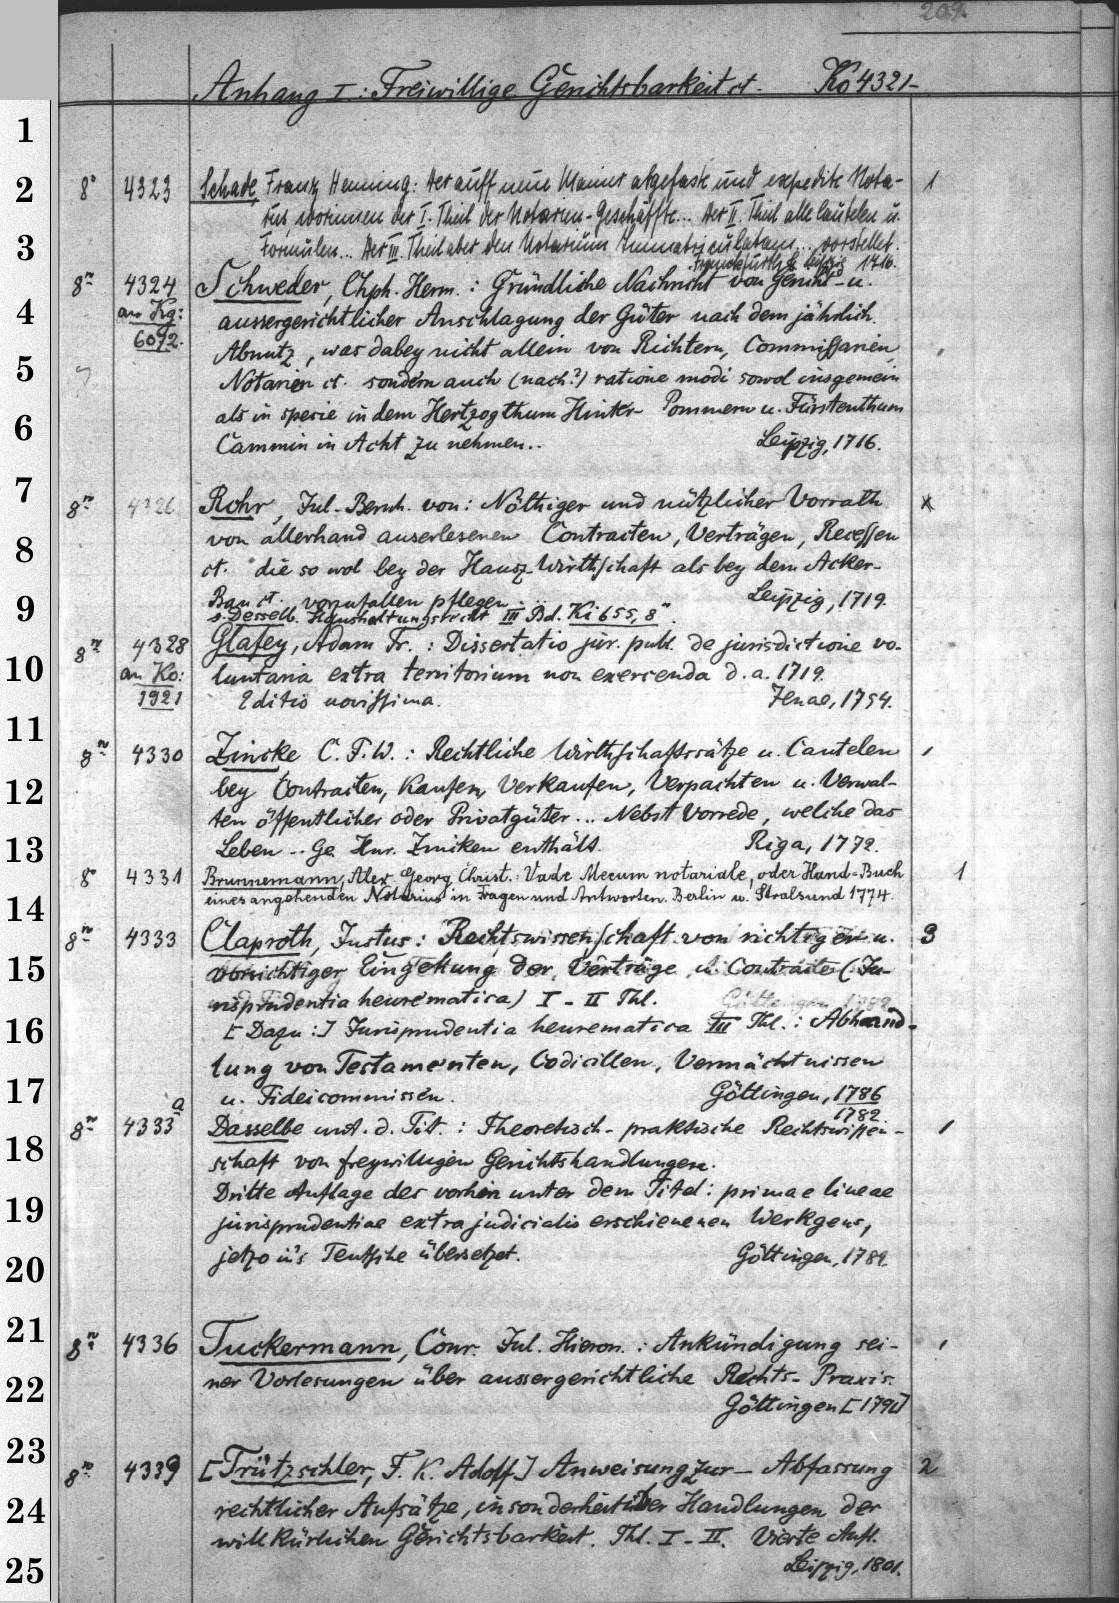 209.
Anhang I: Freiwillige Gerichtsbarkeit ct. Ko 4321-
8° 4323 Schade, Franz Henning: Der auff neue Manier abgefaste und expedite Nota- 1
rius, worinnen der I. Theil der Notarien-Geschäffte... Der II. Theil alle Cautelen u.
Formulen... Der III. Theil aber den Notarium Immatriculatum... vorstellet.
Franckfurth & Leipzig 1716.
8° 4324 Schweder, Chph. Herm.: Gründliche Nachricht von Gericht- u.
an Kg: aussergerichtlicher Anschlagung der Güter nach dem jährlich.
6092. Abnutz, was dabey nicht allein von Richtern, Commissarien,
Notarien ct. sondern auch (nach?) ratione modi sowol insgemein
als in specie in dem Hertzogthum Hinter- Pommern u. Fürstenthum
Cammin in Acht zu nehmen.. Leipzig, 1716.
8° 4326 Rohr, Jul. Bernh. von: Nöthiger und nützlicher Vorrath x
von allerhand auserlesenen Contracten, Verträgen, Recessen
ct. die so wol bey der Hausz-Wirthschaft als bey dem Acker-
Bau ct. vorzufallen pflegen. Leipzig, 1719.
s. Desselb. Haushaltungsrecht III Bd. Ki 655, 8°.
8° 4328 Glafey, Adam Fr.: Dissertatio jur. publ. de jurisdictione vo-
an Ko: luntaria extra territorium non exercenda d. a. 1719.
1921 Editio novissima. Jenae, 1754.
8° 4330 Zincke C. F. W.: Rechtliche Wirthschaftssätze u. Cautelen
bey Contracten, Kaufen, Verkaufen, Verpachten u. Verwal-
ten öffentlicher oder Privatgüter... Nebst Vorrede, welche das
Leben .. Ge. Hnr. Zincken enthält. Riga, 1772.
8° 4331 Brunnemann, Alex. Georg Christ.: Vade Mecum notariale, oder Hand-Buch 1
eines angehenden Notarius in Fragen und Antworten. Berlin u. Stralsund 1774.
8° 4333 Claproth, Justus: Rechtswissenschaft von richtiger u. 3
vorsichtiger Eingehung der Verträge u. Contracte (Ju-
risprudentia heurematica) I - II Thl. Göttingen 1782
[Dazu:] Jurisprudentia heurematica III Thl.: Abhand-
lung von Testamenten, Codicillen, Vermächtnissen
u. Fideicommissen. Göttingen, 1786
1782
8° 4333a Dasselbe unt. d. Tit.: Theoretisch-praktische Rechtswissen- 1
schaft von freywilligen Gerichtshandlungen.
Dritte Auflage des vorhin unter dem Titel: primae lineae
jurisprudentiae extrajudicialis erschienenen Werkgens,
jetzo in's Teutsche übersetzet. Göttingen, 1789.
8° 4336 Tuckermann, Conr. Jul. Hieron.: Ankündigung sei-
ner Vorlesungen über aussergerichtliche Rechts-Praxis.
Göttingen [1791]
8° 4339 [Trützschler, F. K. Adolf] Anweisung zur Abfassung 2
rechtlicher Aufsätze, insonderheit über Handlungen der
willkürlichen Gerichtsbarkeit. Thl. I-II. Vierte Aufl.
Leipzig, 1801.
1
2
3
4
5
6
7
8
9
10
11
12
13
14
15
16
17
18
19
20
21
22
23
24
25